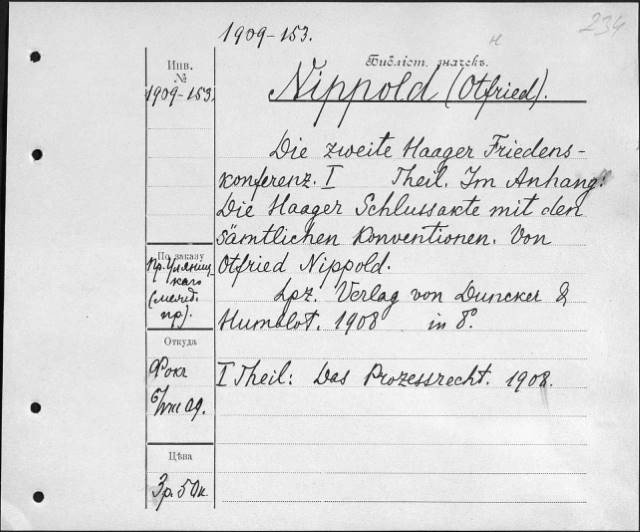 234
1909-153.
н
Инв.
№
1909-153.
Библіот. значекъ.
Nippold (Otfried).
Die zweite Haager Friedens-
konferenz. I Theil. Im Anhang:
Die Haager Schlussakte mit den
sämtlichen Konventionen. Von
Otfried Nippold.
Lpz. Verlag von Duncker &
Humblot. 1908 in 8º.
I Theil: Das Prozessrecht. 1908.
По заказу
Пр. Уляниц-
каго
пр).
Откуда
Фокк
09.
Цѣна
3р. 50к.